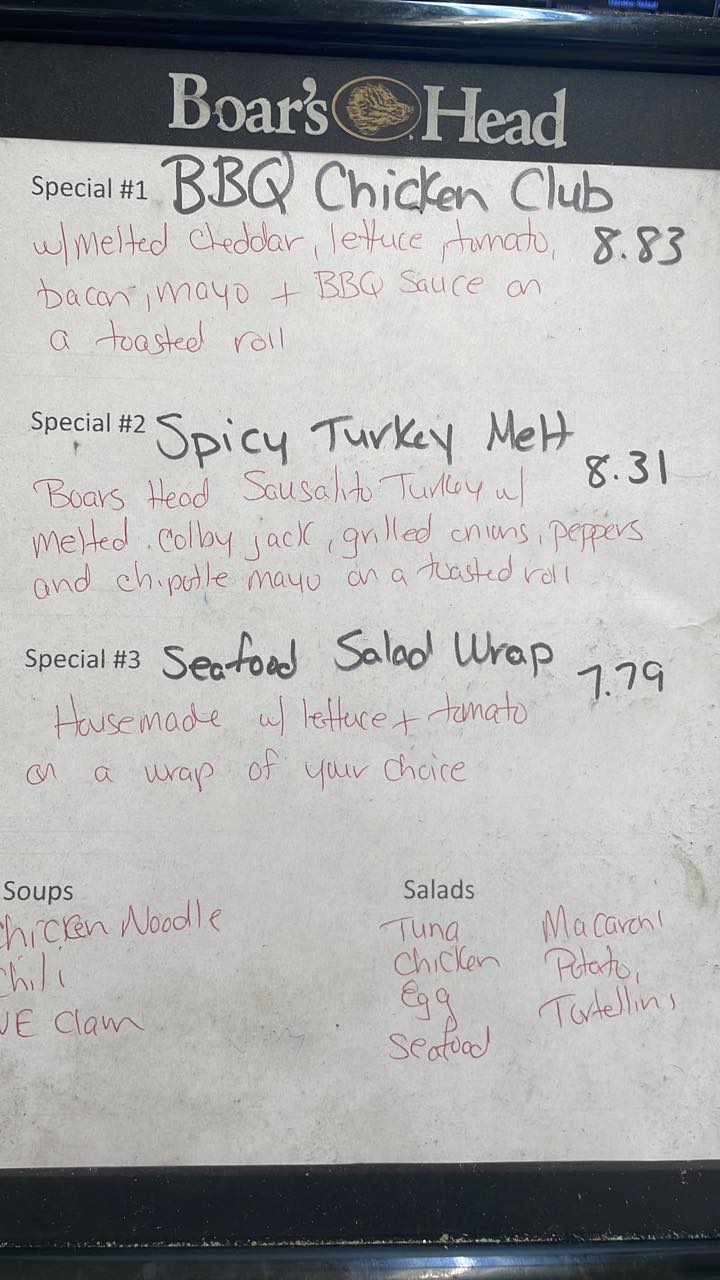 Boar's Head
Special #1 BBQ Chicken Club
w/melted cheddar, lettuce, tomato, 8.83
bacon, mayo + BBQ Sauce on
a toasted roll
Special #2 Spicy Turkey Melt
8.31
Boars Head Sausalito Turkey w/
melted colby jack, grilled onions, peppers
and chipotle mayo on a toasted roll
Special #3 Seafood Salad Wrap
7.79
Housemade w/ lettuce + tomato
on a wrap of your choice
Soups
Chicken Noodle
Chili
NE Clam
Salads
Tuna Macaroni
Chicken Potato,
Egg Tortellini
Seafood